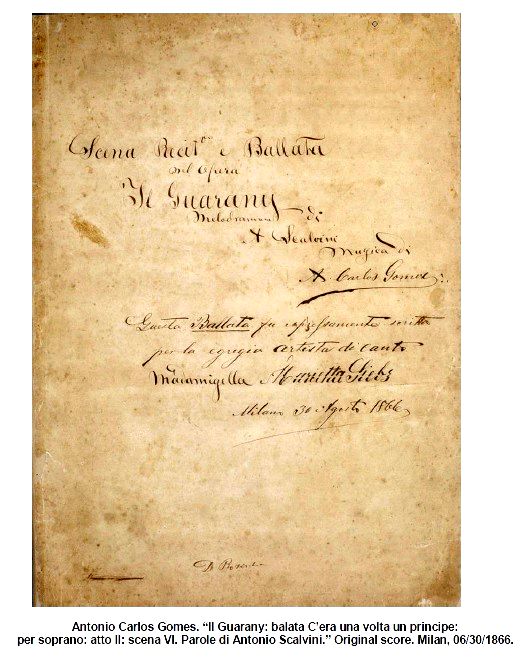 Scena Recit.vo e Ballata
nell Opera
Il Guarany
Melodramma di
A Scalvini
Musica di
A Carlos Gomes
Questa Ballata fu espressamente scritta
per la egregia artista di canto
Madamigella Marietta Siebs
Milano 30 Agosto 1866
Antonio Carlos Gomes. “Il Guarany: balata C’era una volta un principe:
per soprano: atto II: scena VI. Parole di Antonio Scalvini.” Original score. Milan, 06/30/1866.